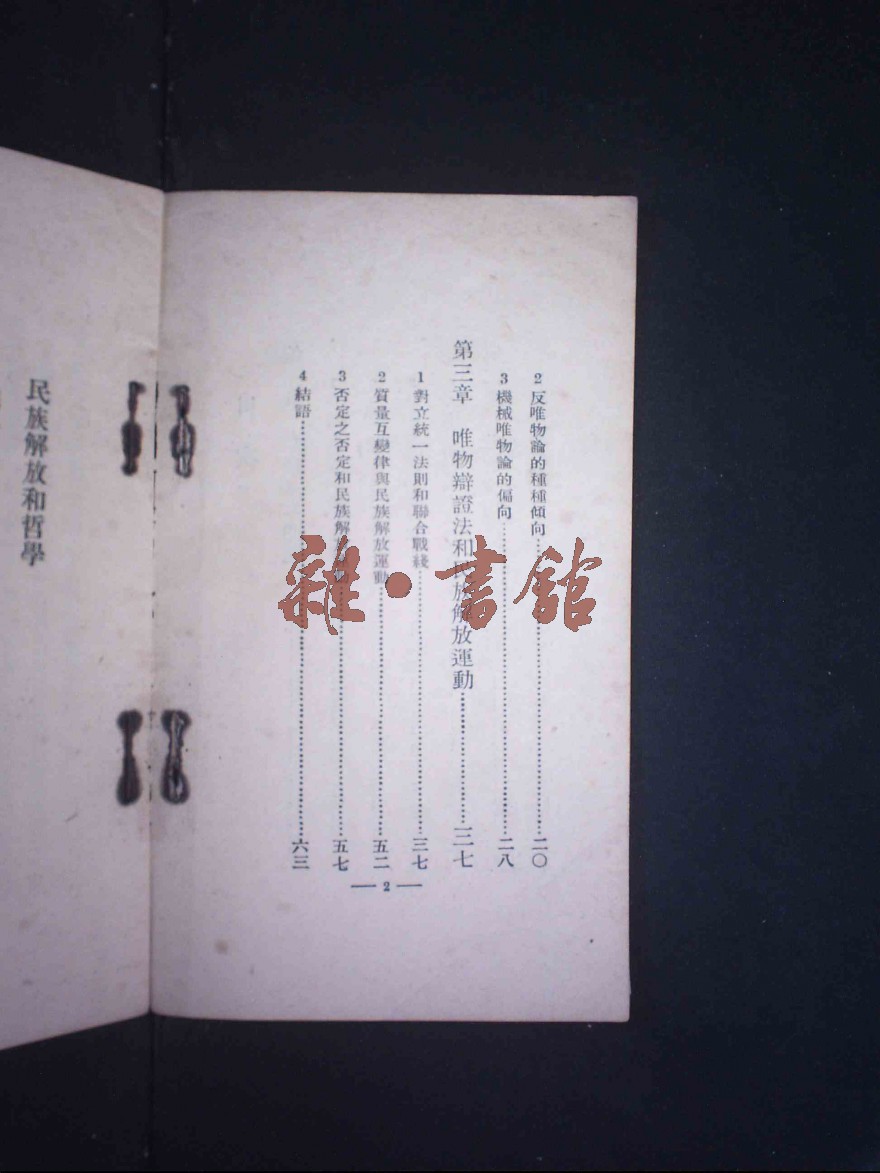 2 反唯物論的種種傾向……二〇
3 機械唯物論的偏向……二八
第三章 唯物辯證法和民族解放運動……三七
1 對立統一法則和聯合戰綫……三七
2 質量互變律與民族解放運動……五二
3 否定之否定和民族解……五七
4 結語……六三
— 2 —
民族解放和哲學
雜·書館